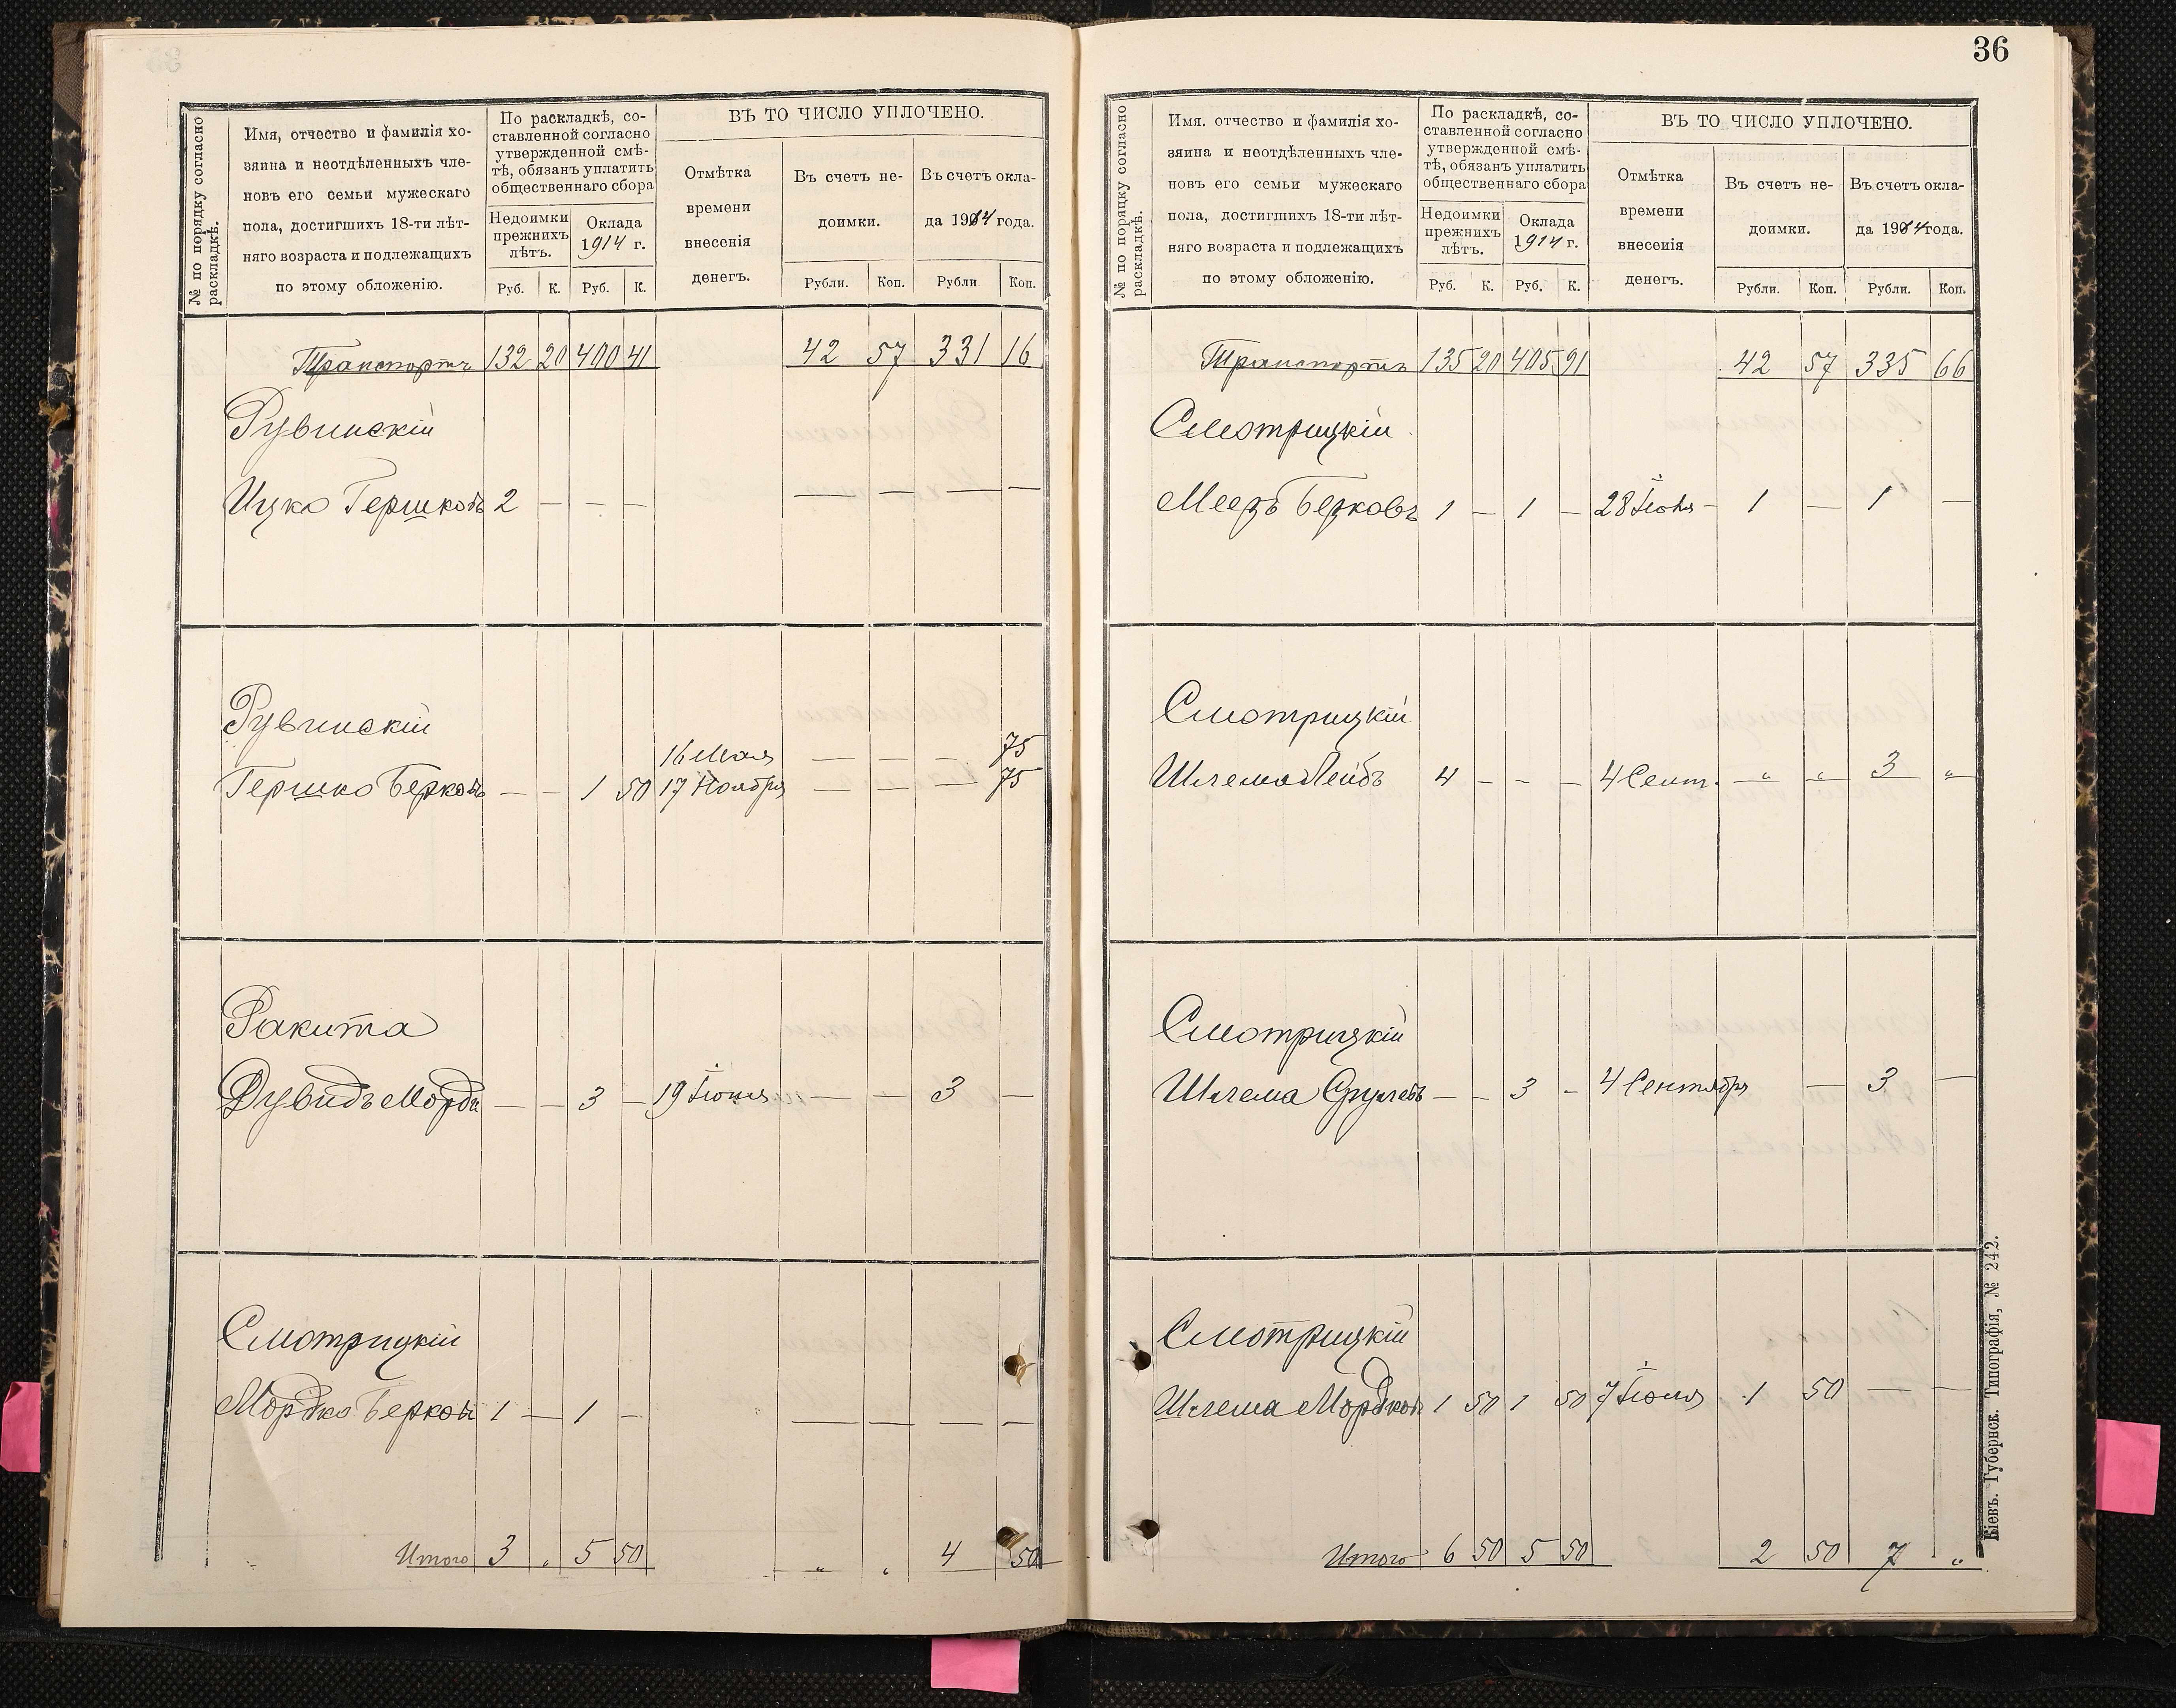 № по порядку согласно раскладкѣ.
Имя, отчество и фамилія хо-
зяина и неотдѣленныхъ чле-
новъ его семьи мужескаго
пола, достигшихъ 18-ти лѣт-
няго возраста и подлежащихъ
по этому обложенію.
По раскладкѣ, со-
ставленной согласно
утвержденной смѣ-
тѣ, обязанъ уплатить
общественнаго сбора
Недоимки
прежнихъ
лѣтъ.
Оклада
1914 г.
Руб. К. Руб. К.
ВЪ ТО ЧИСЛО УПЛОЧЕНО.
Отмѣтка
времени
внесенія
денегъ.
Въ счетъ не-
доимки.
Въ счетъ окла-
да 1914 года.
Рубли. Коп. Рубли Коп.
Транспортъ 132 20 400 41 42 57 331 16
Рувинскій
Ицко Гершковъ 2 — — — — — — —
Рувинскій
16 Мая — — — 75
Гершко Берковъ — — 1 50 17 Ноября — — — 75
Ракита
Дувидъ Мордк — — 3 — 19 Іюня — — 3 —
Смотрицкій
Мордко Берков 1 — 1 — — — — —
Итого 3 „ 5 50 „ „ 4 50
36
№ по порядку согласно раскладкѣ.
Имя, отчество и фамилія хо-
зяина и неотдѣленныхъ чле-
новъ его семьи мужескаго
пола, достигшихъ 18-ти лѣт-
няго возраста и подлежащихъ
по этому обложенію.
По раскладкѣ, со-
ставленной согласно
утвержденной смѣ-
тѣ, обязанъ уплатить
общественнаго сбора
Недоимки
прежнихъ
лѣтъ.
Оклада
1914 г.
Руб. К. Руб. К.
ВЪ ТО ЧИСЛО УПЛОЧЕНО.
Отмѣтка
времени
внесенія
денегъ.
Въ счетъ не-
доимки.
Въ счетъ окла-
да 1914 года.
Рубли. Коп. Рубли. Коп.
Транспортъ 135 20 405 91 42 57 335 66
Смотрицкій
Мееръ Берковъ 1 — 1 — 28 — 1 — 1 —
Смотрицкій
Шлема Лейбъ 4 — — — 4 Сент. — „ „ 3 „
Смотрицкій
Шлема Срулевъ — — 3 — 4 Сентября — 3 —
Смотрицкій
Шлема Мордков 1 50 1 50 7 1 50 — —
Итого 6 50 5 50 2 50 7 „
Кіевъ. Губернск. Типографія, № 242.